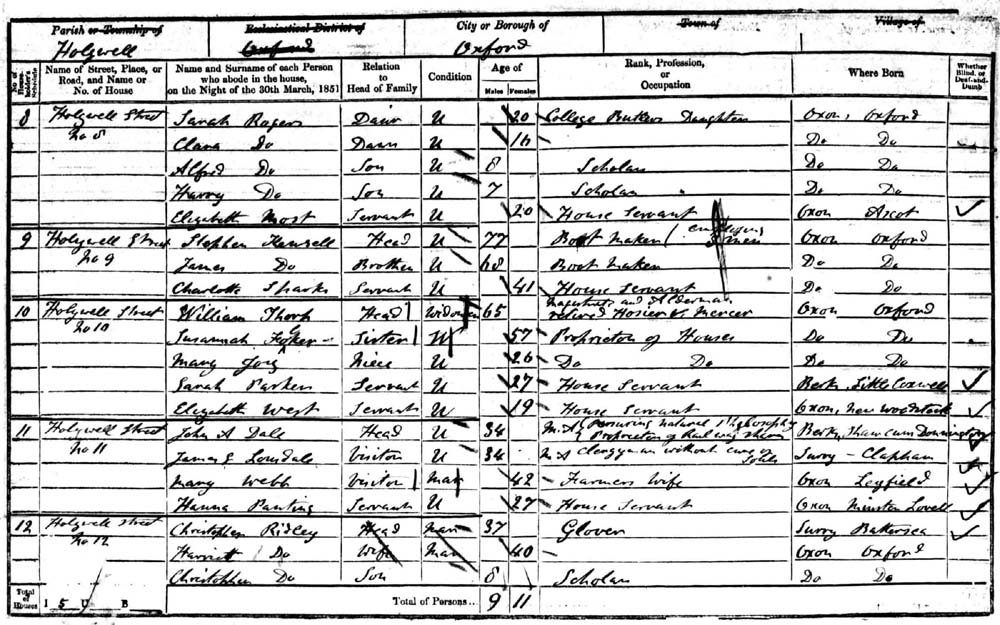 Parish or Township of Ecclesiastical District of City or Borough of Town of Village of
Holywell Oxford Oxford
No. of House-holder's Schedule Name of Street, Place, or Road, and Name or No. of House Name and Surname of each Person who abode in the house, on the Night of the 30th March, 1851 Relation to Head of Family Condition Age of Males Females Rank, Profession, or Occupation Where Born Whether Blind, or Deaf-and-Dumb
8 Holywell Street Sarah Rogers Daur U 20 College Butlers Daughter Oxon, Oxford
No 8 Clara Do Daur U 16 Do Do
Alfred Do Son U 8 Scholar Do Do
Harry Do Son U 7 Scholar Do Do
Elizabeth Most Servant U 20 House Servant Oxon Ascot
9 Holywell Street Stephen Head U 77 Boot Maker employing men Oxon Oxford
No 9 James Do Brother U 68 Boot Maker Do Do
Charlotte Sparks Servant U 41 House Servant Do Do
10 Holywell Street William Thorp Head Widower 65 Magistrate and Alderman retired Hosier & Mercer Oxon Oxford
No 10 Susannah Sister 57 Proprietor of Houses Do Do
Mary Niece U 26 Do Do Do Do
Sarah Parker Servant U 27 House Servant Berk. Little Coxwell
Elizabeth West Servant U 19 House Servant Oxon, New Woodstock
11 Holywell Street John A Dale Head U 34 M.A. Pursuing natural Philosophy Proprietor of Railway shares Berk. Shaw cum Donnington
No 11 James G Lonsdale Visitor U 34 M A Clergyman without care of Souls Surry - Clapham
Mary Webb Visitor Mar 42 Farmers Wife Oxon Leyfield
Hanna Panting Servant U 27 House Servant Oxon Minster Lovell
12 Holywell Street Christopher Ridley Head Mar 37 Glover Surry Battersea
No 12 Harriett Do Wife Mar 40 Oxon Oxford
Christopher Do Son 8 Scholar Do Do
Total of Houses I 5 U B Total of Persons... 9 11